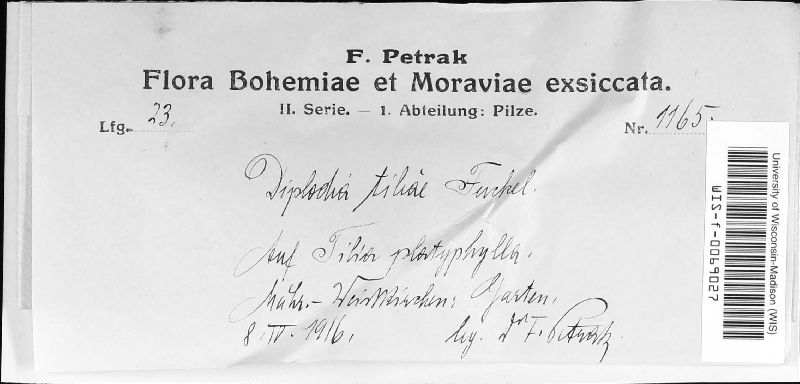 F. Petrak
Flora Bohemiae et Moraviae exsiccata.
II. Serie. — 1. Abteilung: Pilze.
Lfg. 23.
Nr. 1165.
Diplodia tiliae Fuckel.
Auf Tilia platyphylla.
Mähr.-Weisskirchen: Garten.
8. IV. 1916.
leg. Dr F. Petrak.
University of Wisconsin-Madison (WIS)
WIS-f-0069027